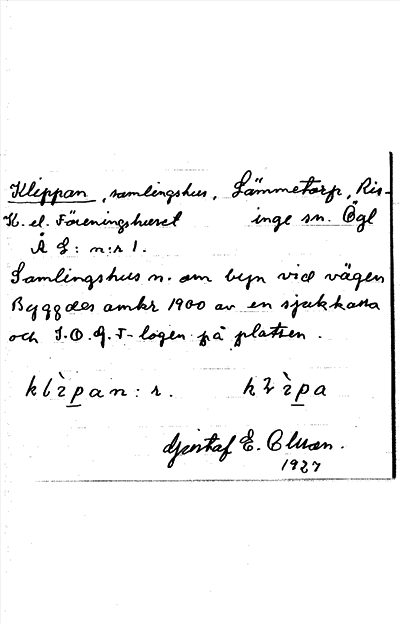 Klippan, samlingshus, Lämmetorp, Ris-
K. el. Föreningshuset inge sn. Ögl
Å L: n:r 1.
Samlingshus n. om byn vid vägen
Byggdes omkr 1900 av en sjukkassa
och I.O.G.T-logen på platsen.
klìpan:r. klìpa
Gustaf E. Olsson.
1927